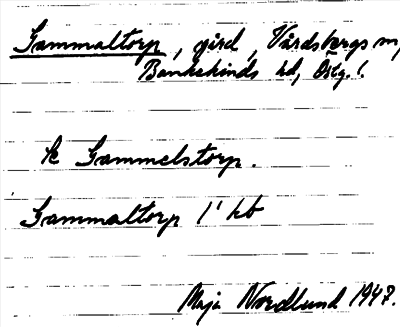 Gammaltorp, gård, Vårdsbergs sn,
Bankekinds hd, Östg. l.
k Gammelstorp.
Gammaltorp 1' kb
Maja Nordlund 1947.